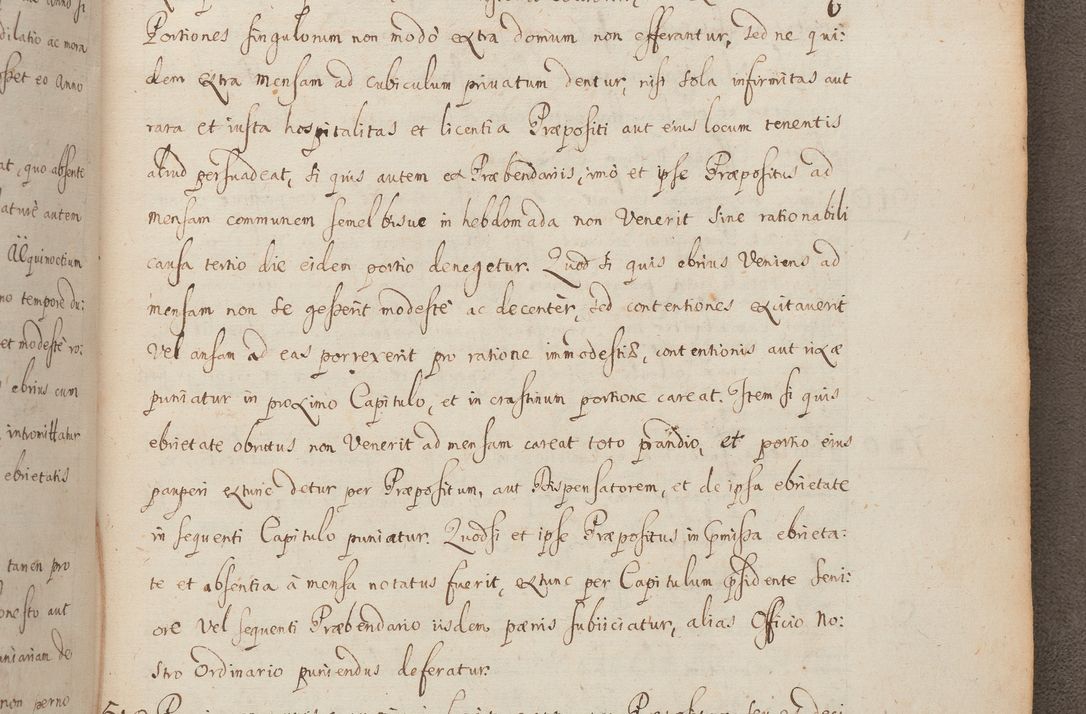 Portiones singulorum non modò extra domum non efferantur, sed ne qui:
dem extra mensam ad cubiculum privatum dentur, nisi sola infirmitas aut
rara et iusta hospitalitas et licentia Præpositi aut eius locum tenentis
aliud persuadeat, si quis autem ex Præbendariis, imò et ipse Præpositus ad
mensam communem semel bisve in hebdomada non Venerit sine rationabili
causa tertio die eidem portio denegetur. Quod si quis ebrius Veniens ad
mensam non se gesserit modestè ac decentèr, sed contentiones excitaverit
Vel ansam ad eas porrexerit pro ratione immodestiæ, contentionis aut rixæ
puniatur in proximo Capitulo, et in crastinum portione careat. Item si quis
ebrietate obrutus non Venerit ad mensam careat toto prandio, et portio eius
pauperi extunc detur per Præpositum, aut Dispensatorem, et de ipsa ebrietate
in sequenti Capitulo puniatur. Quodsi et ipse Præpositus in pmissa ebrieta:
te et absentia à mensa notatus fuerit, extunc per Capitulum psidente Seni:
ore Vel sequenti Præbendario iisdem pænis subiiciatur, alias Officio No:
stro Ordinario puniendus deferatur.
dilatio ac mora
eo Anno
quo absente
autem
Æquinoctium
tempore du:
et modestè
ebrius cum
intromittatur
ebrietatis
tamen pro
aut
de
non perno